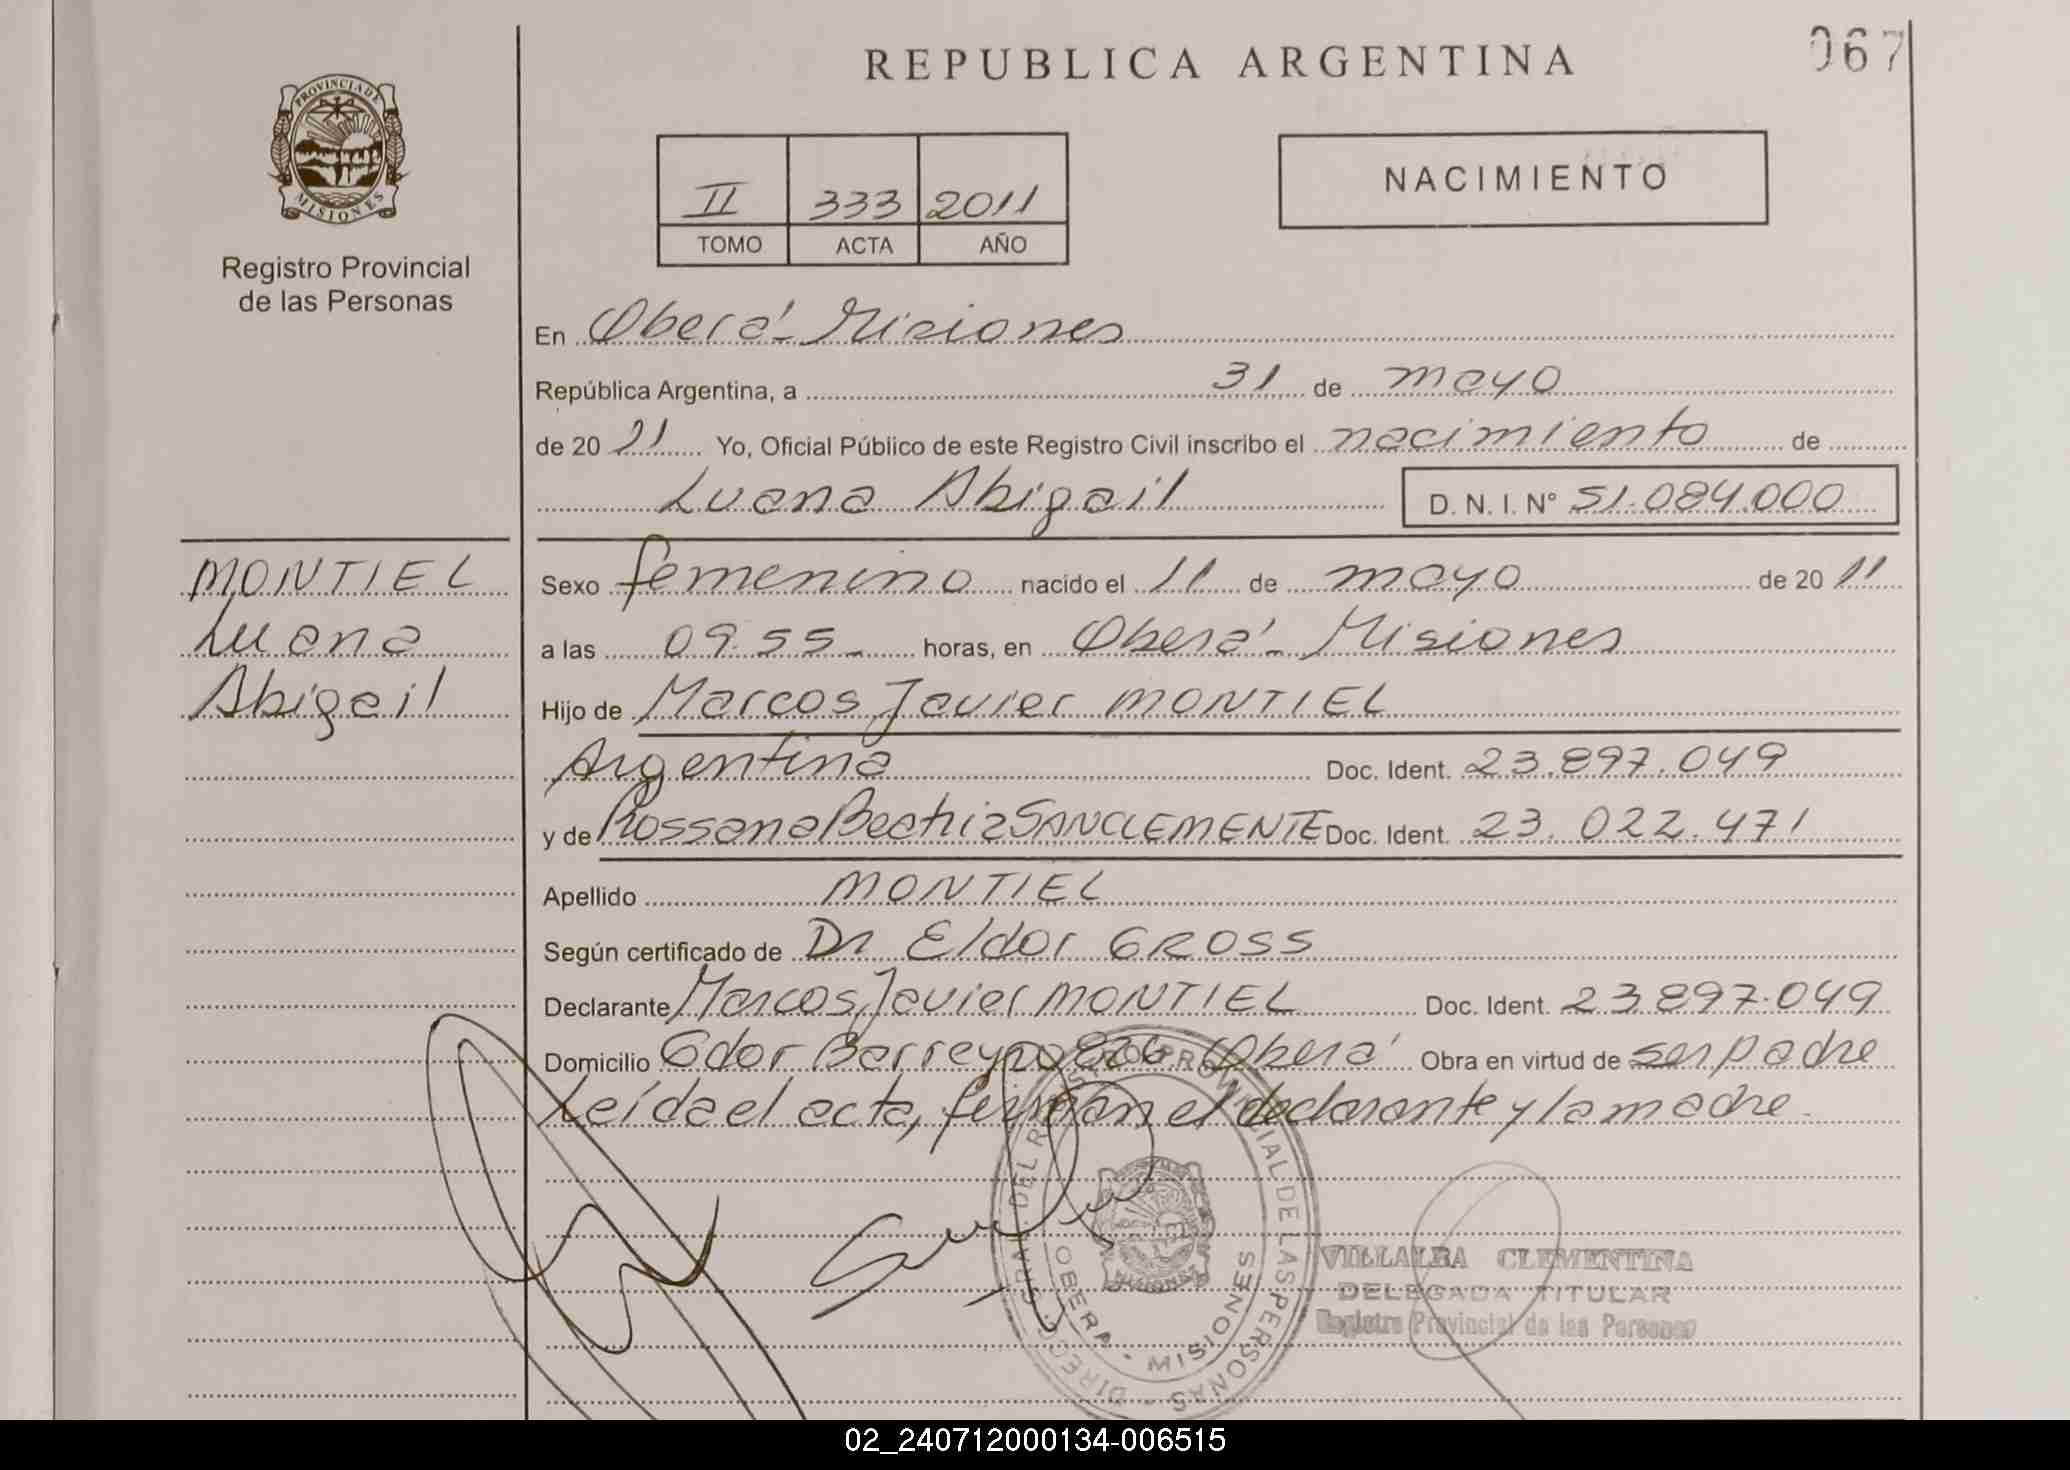 067
REPUBLICA ARGENTINA
PROVINCIA DE
MISIONES
Registro Provincial
de las Personas
II 333 2011
TOMO ACTA AÑO
NACIMIENTO
En Oberá - Misiones
República Argentina, a 31 de mayo
de 20 11 Yo, Oficial Público de este Registro Civil inscribo el nacimiento de
Luana Abigail D. N. I. N° 51.084.000
MONTIEL
Luana
Abigail
Sexo femenino nacido el 11 de mayo de 20 11
a las 09.55 - horas, en Oberá - Misiones
Hijo de Marcos Javier MONTIEL
Argentina Doc. Ident. 23.897.049
y de Rossana Beatriz SANCLEMENTE Doc. Ident. 23.022.471
Apellido MONTIEL
Según certificado de Dr Eldor GROSS
Declarante Marcos Javier MONTIEL Doc. Ident. 23.897.049
Domicilio Gdor Barreyro 826 Oberá Obra en virtud de ser padre
Leída el acta, firman el declarante y la madre.
DEL REGISTRO PROVINCIAL DE LAS PERSONAS
OBERA - MISIONES
MISIONES
VILLALBA CLEMENTINA
DELEGADA TITULAR
Registro Provincial de las Personas
02_240712000134-006515